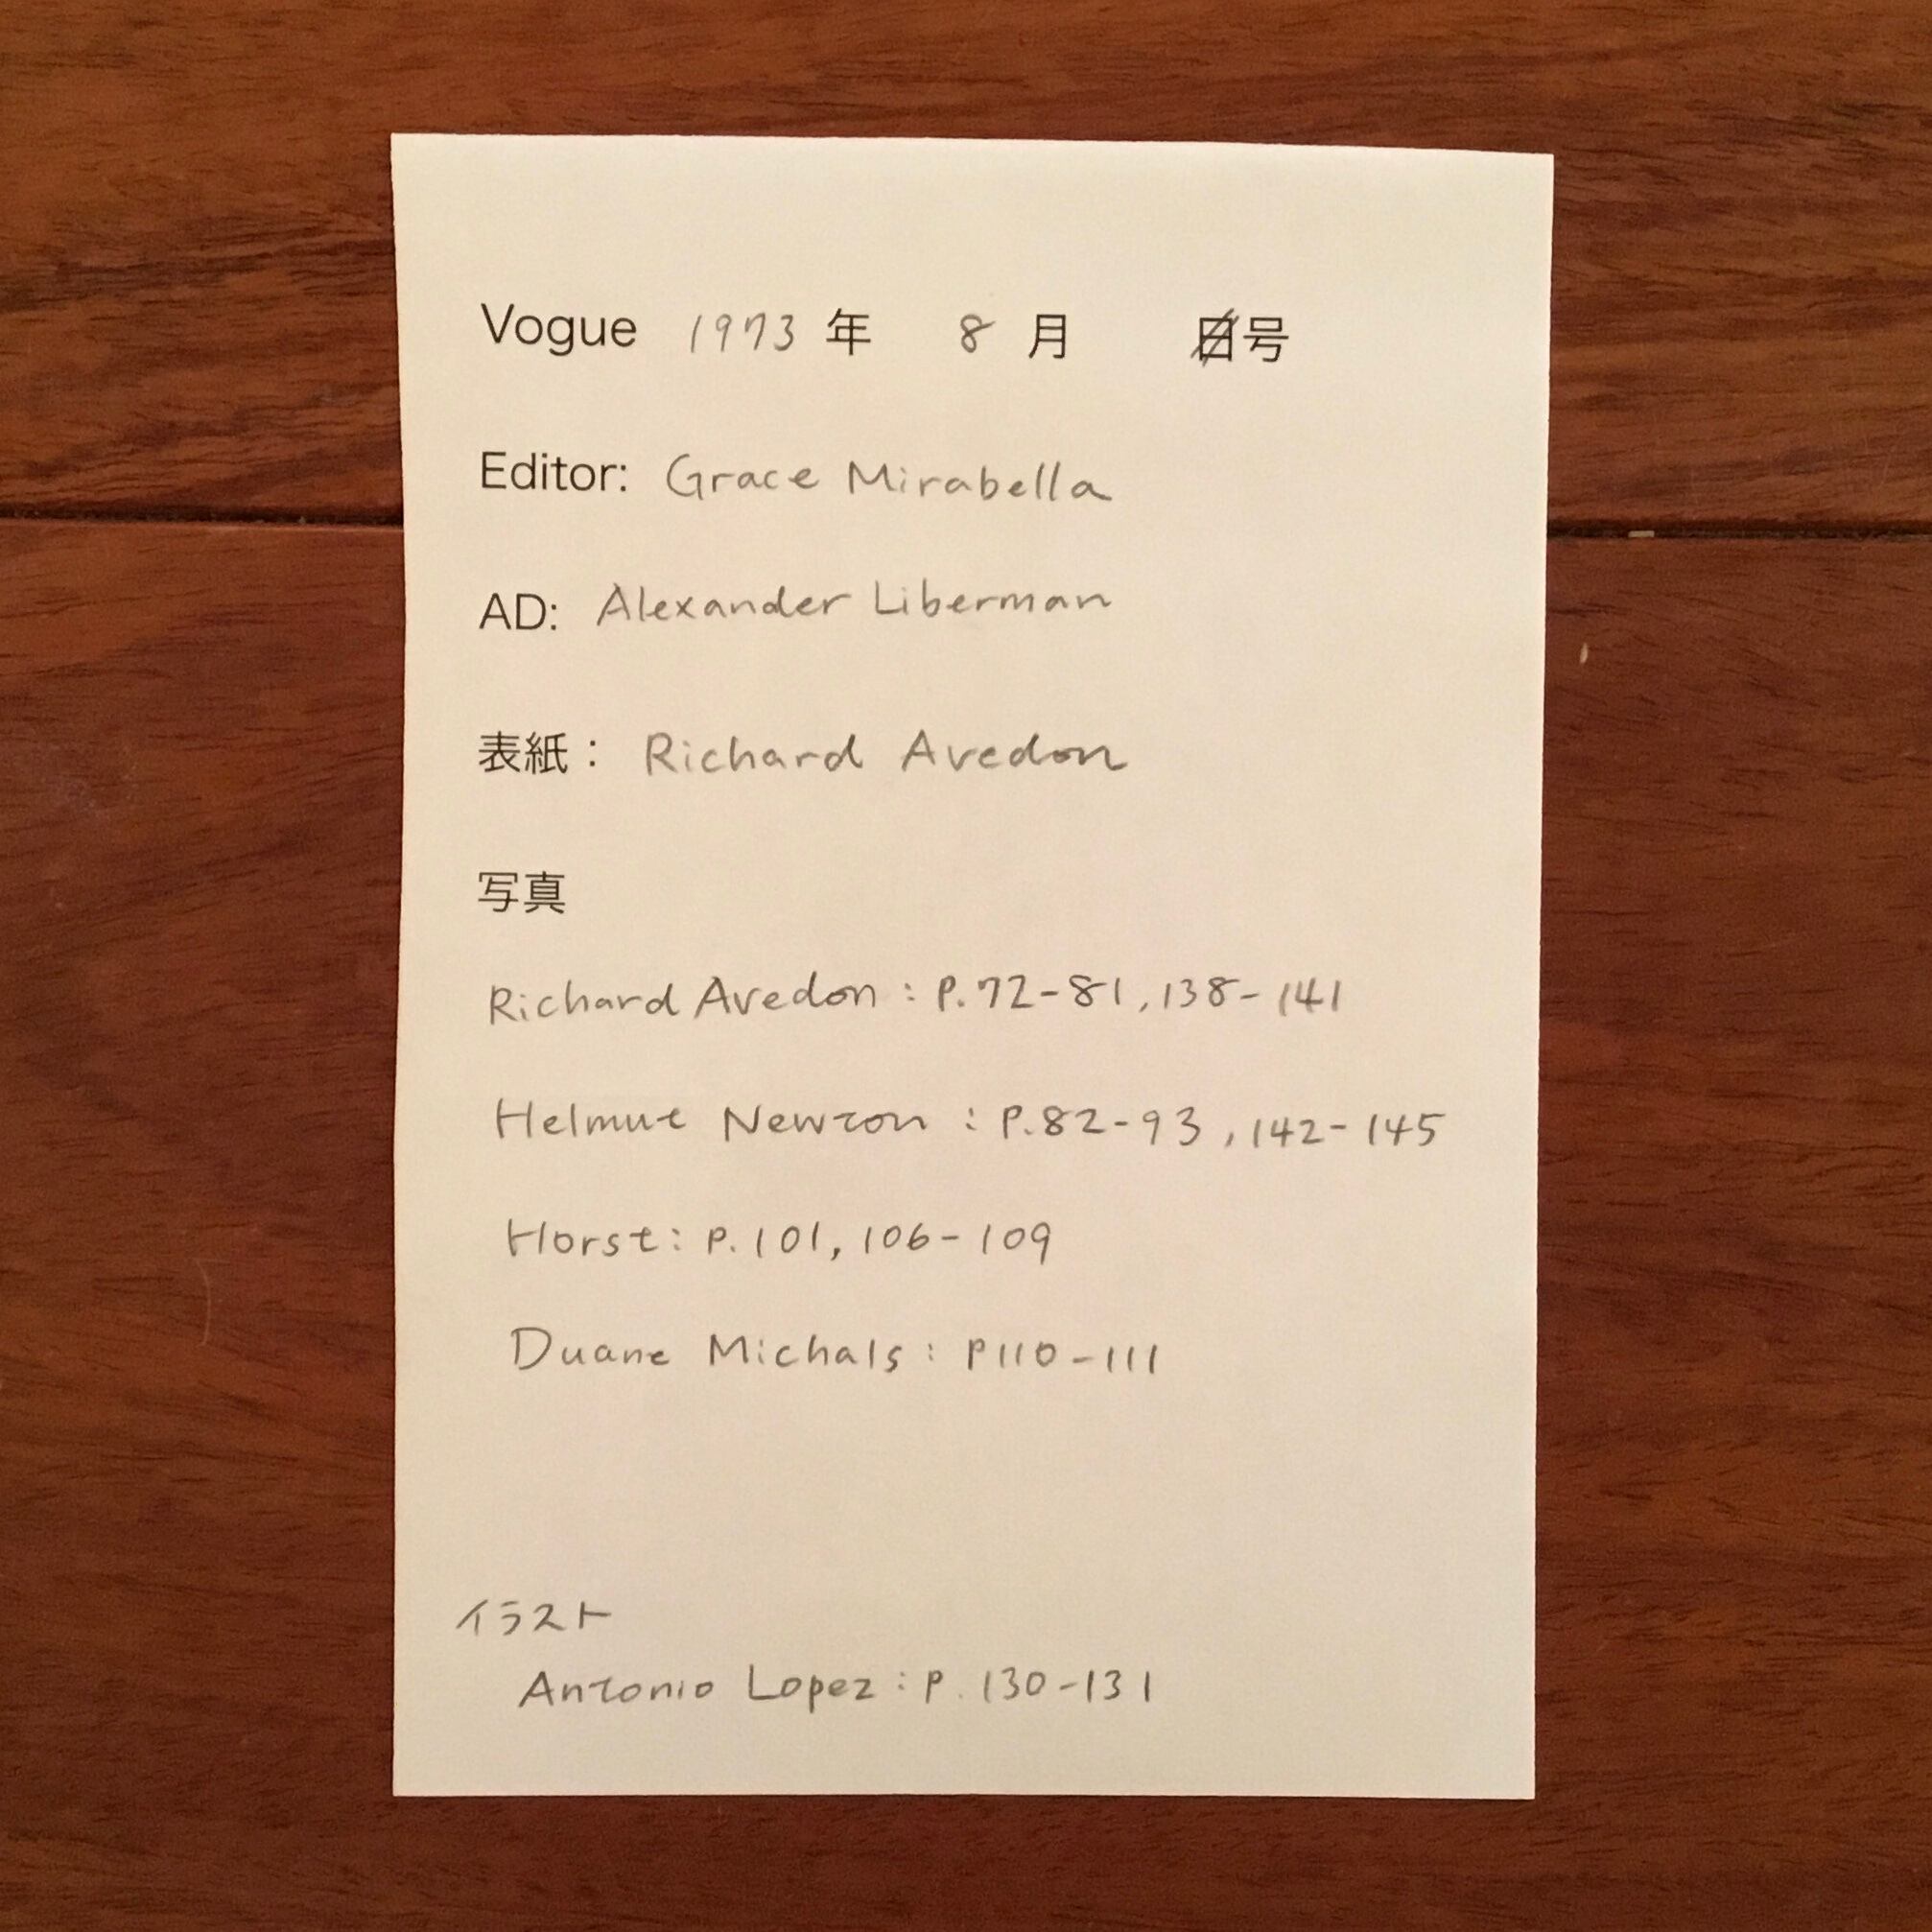 Vogue 1973 年 8 月 号
Editor: Grace Mirabella
AD: Alexander Liberman
表紙： Richard Avedon
写真
Richard Avedon : P.72-81, 138-141
Helmut Newton : P.82-93, 142-145
Horst: P.101, 106-109
Duane Michals : P110-111
イラスト
Antonio Lopez : P.130-131